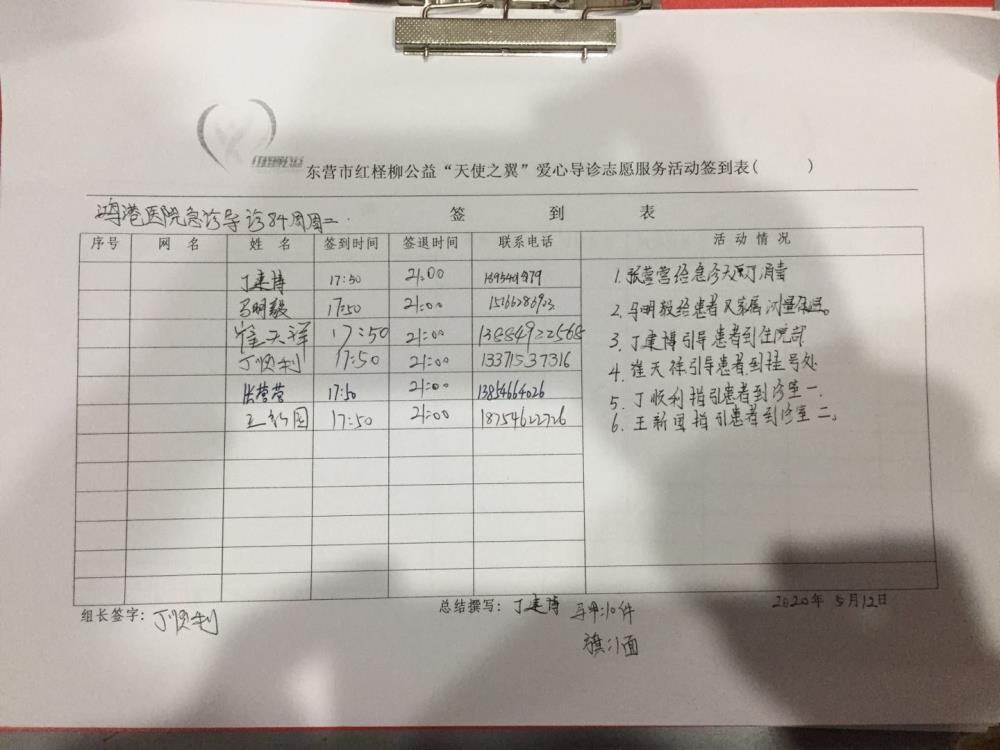 东营市红柽柳公益“天使之翼”爱心导诊志愿服务活动签到表( )
鸿港医院急诊导诊84周周二.
签 到 表
序号 网 名 姓 名 签到时间 签退时间 联系电话 活 动 情 况
丁建博 17:50 21:00
马明毅 17:50 21:00
崔天祥 17:50 21:00 13884922568
丁顺利 17:50 21:00 13371537316
张营营 17:50 21:00 13854664026
王新国 17:50 21:00 18754622726
1.张营营给急诊大厅消毒
2.马明毅给患者及家属测量体温。
3.丁建博引导患者到住院部
4.崔天祥引导患者到挂号处
5.丁顺利指引患者到诊室一.
6.王新国指引患者到诊室二。
组长签字: 丁顺利
总结撰写: 丁建博
马甲:10件
旗:1面
2020年5月12日